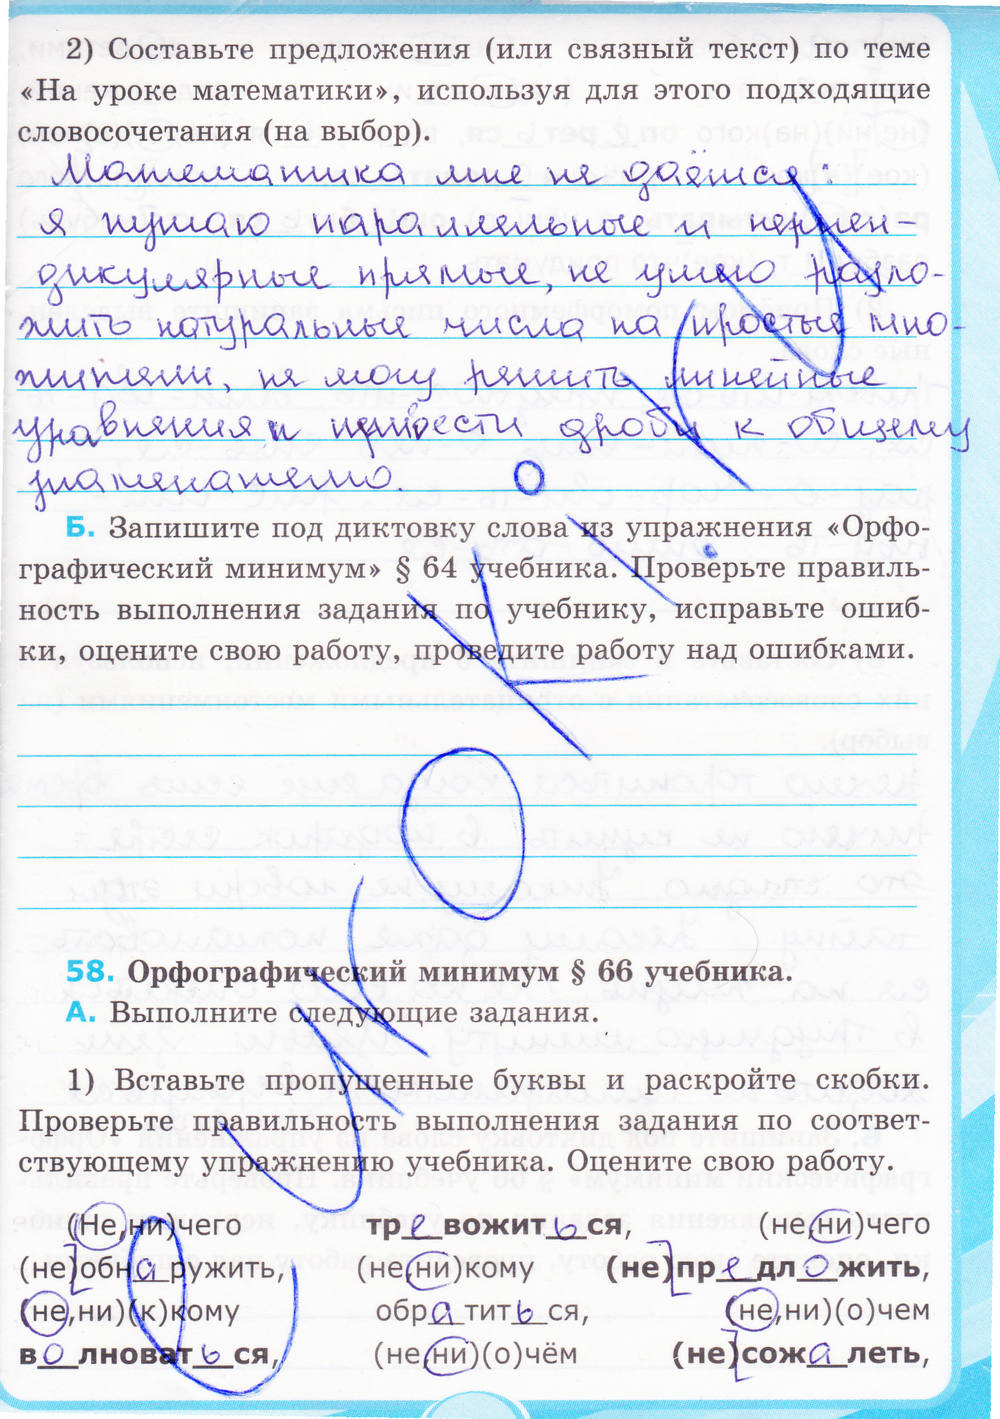 2) Составьте предложения (или связный текст) по теме
«На уроке математики», используя для этого подходящие
словосочетания (на выбор).
Математика мне не даётся:
я путаю параллельные и перпен-
дикулярные прямые, не умею разло-
жить натуральные числа на простые мно-
жители, не могу решить линейные
уравнения и привести дроби к общему
знаменателю.
Б. Запишите под диктовку слова из упражнения «Орфо-
графический минимум» § 64 учебника. Проверьте правиль-
ность выполнения задания по учебнику, исправьте ошиб-
ки, оцените свою работу, проведите работу над ошибками.
58. Орфографический минимум § 66 учебника.
А. Выполните следующие задания.
1) Вставьте пропущенные буквы и раскройте скобки.
Проверьте правильность выполнения задания по соответ-
ствующему упражнению учебника. Оцените свою работу.
(Не,ни)чего тревожиться, (не,ни)чего
(не)обнаружить, (не,ни)кому (не)предложить,
(не,ни)(к)кому обратиться, (не,ни)(о)чем
волноваться, (не,ни)(о)чём (не)сожалеть,